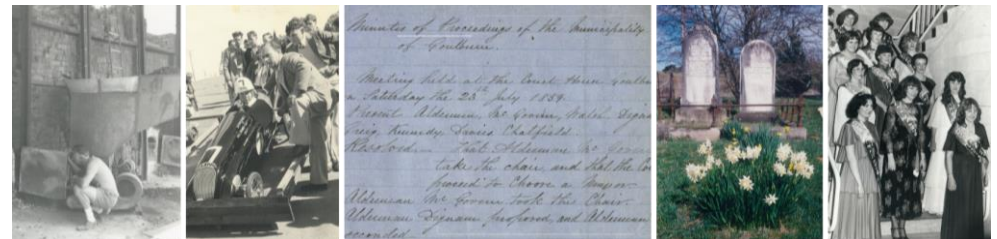 Minutes of Proceedings of the Municipality
of Goulburn.
Meeting held at the Court House Goulbu
on Saturday the 23rd July 1859.
Present Aldermen, Mc Govern, Walsh, Digna
Kennedy, Davies, Chatfield.
Resolved That Alderman Mc Govern
take the chair and that the Co
proceed to Choose a Mayor
Alderman Mc Govern took the Chair
Alderman Dignam proposed and Alderman
seconded